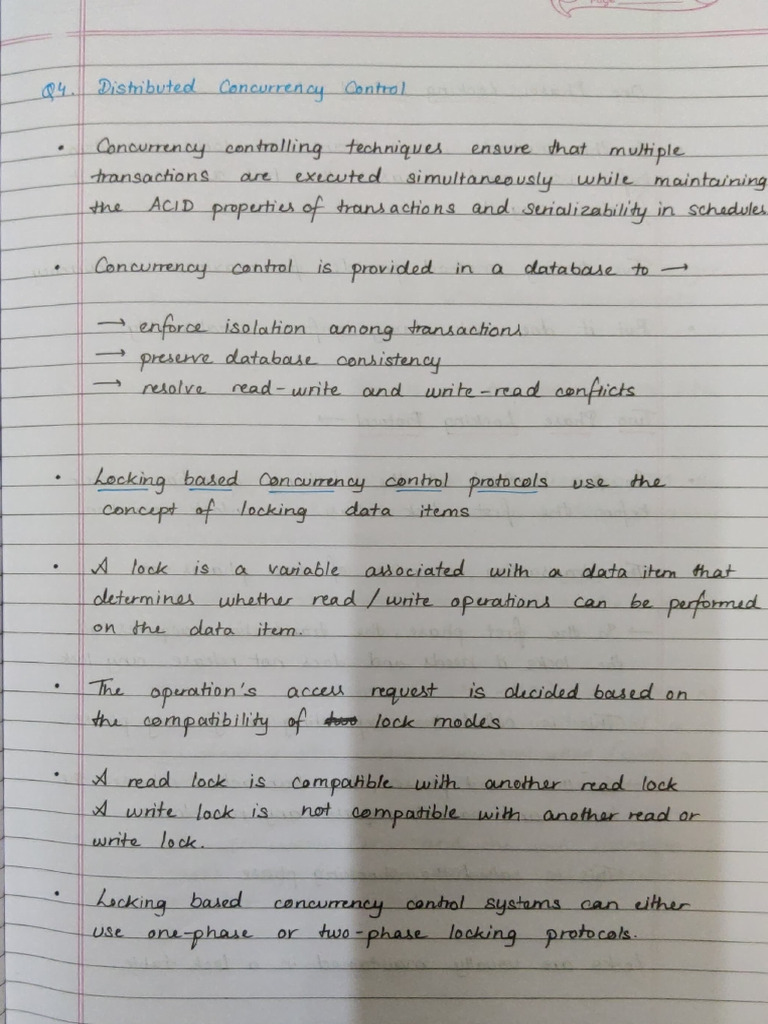 Page
Q4. Distributed Concurrency Control
• Concurrency controlling techniques ensure that multiple
transactions are executed simultaneously while maintaining
the ACID properties of transactions and serializability in schedules.
• Concurrency control is provided in a database to →
→ enforce isolation among transactions
→ preserve database consistency
→ resolve read-write and write-read conflicts
• Locking based Concurrency control protocols use the
concept of locking data items
• A lock is a variable associated with a data item that
determines whether read / write operations can be performed
on the data item.
• The operation's access request is decided based on
the compatibility of two lock modes
• A read lock is compatible with another read lock
A write lock is not compatible with another read or
write lock.
• Locking based concurrency control systems can either
use one-phase or two-phase locking protocols.